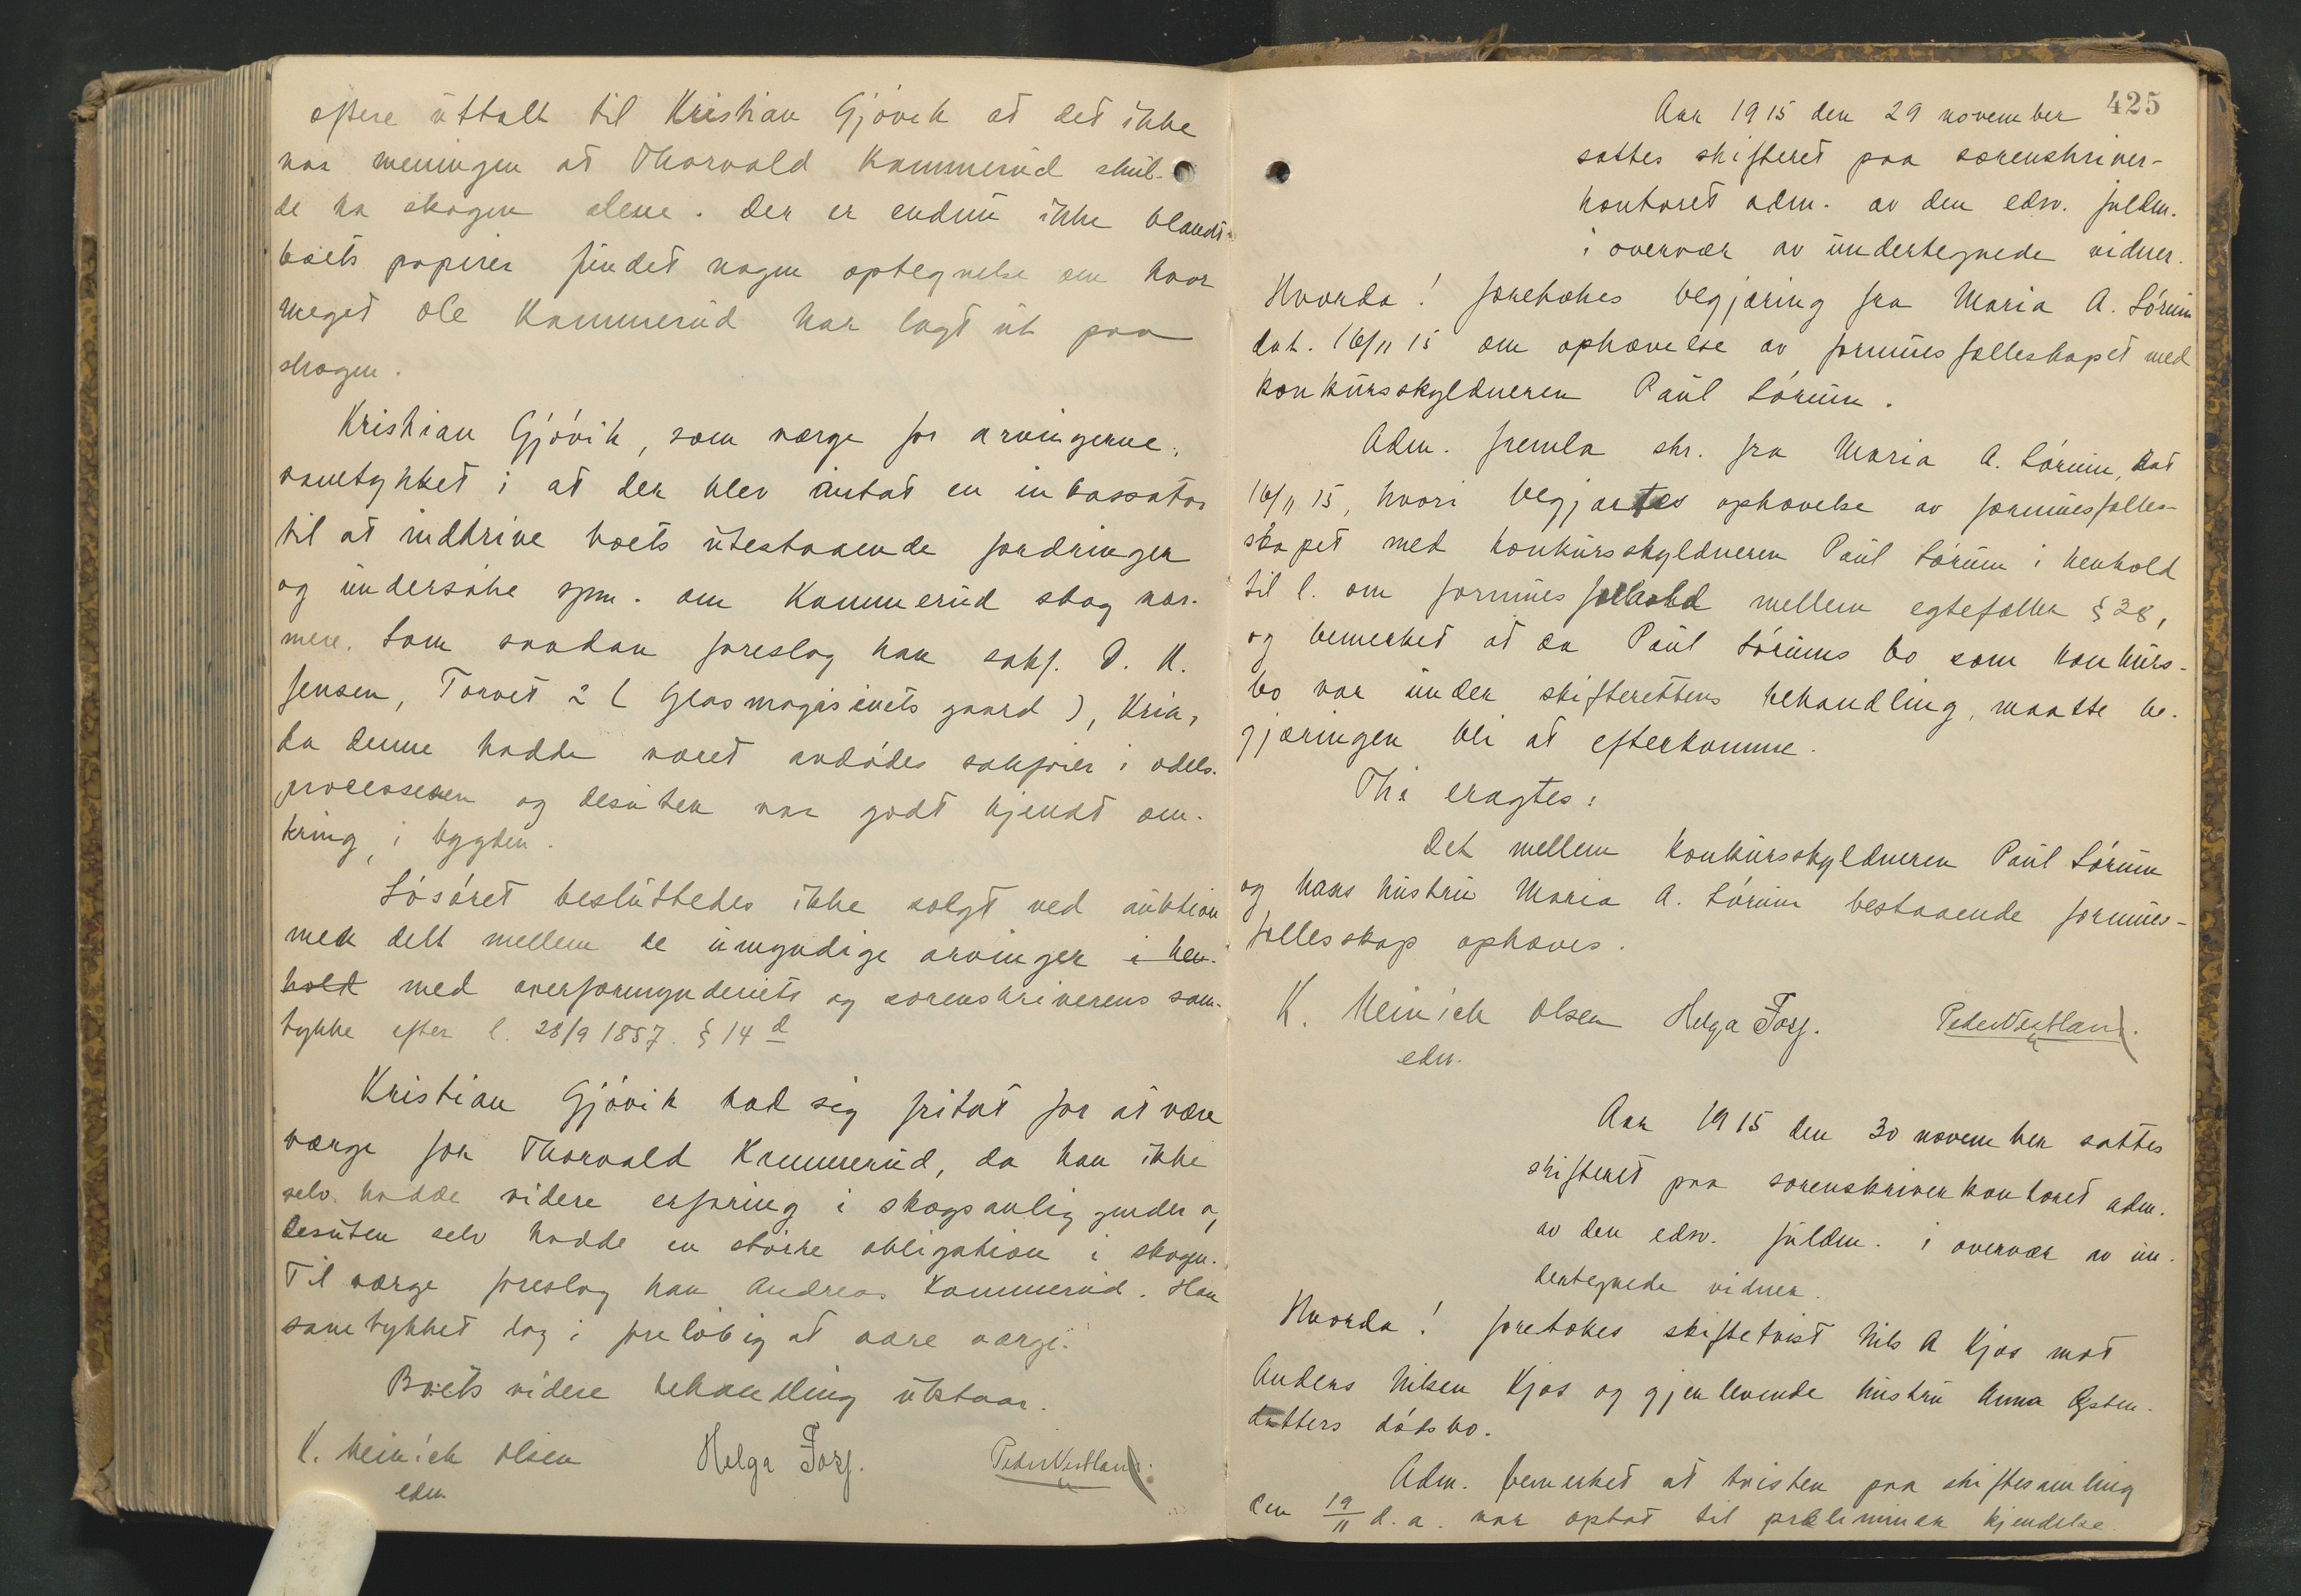 oftere uttalt til Kristian Gjövik at det ikke
var meningen at Thorvald Kammerud skul-
de ha skogen alene. Der er endnu ikke blandt
boets papirer fundet nogen optegnelse om hvor
meget Ole Kammerud har lagt ut paa
skogen.
Kristian Gjövik, som verge for arvingerne,
samtykket i at der blev antat en inkassator
til at inddrive boets utestaaende fordringer
og undersöke spm. om Kammerud skog nær-
mere. Som saadan foreslog han sakf. O. K.
Jensen, Torvet 2 (Glasmagasinets gaard), Kria,
da denne hadde været avdödes sakförer i odels-
processen og desuten var godt kjendt om-
kring i bygden.
Lösöret besluttedes ikke solgt ved auktion
men delt mellem de umyndige arvinger i hen-
hold med overformynderiets og sorenskriverens sam-
tykke efter l. 28/9 1857. § 14 d
Kristian Gjövik bad sig fritat for at være
verge for Thorvald Kammerud, da han ikke
selv hadde videre erfaring i skogsanliggender og
desuten selv hadde en större obligation i skogen.
Til verge foreslog han Andreas Kammerud. Han
samtykket dog i forelöbig at være verge.
Boets videre behandling utstaar.
K. Meinich Olsen Helga Forf. Peder Vestland.
edsv.
425
Aar 1915 den 29 november
sattes skifteret paa sorenskriver-
kontoret adm. av den edsv. fuldm.
i overvær av undertegnede vidner.
Hvorda! foretokes begjæring fra Maria A. Sörum
dat. 16/11 15 om ophævelse av formuesfælleskapet med
konkursskyldneren Paul Sörum.
Adm. fremla skr. fra Maria A. Sörum, dat
16/11 15, hvori begjærtes ophævelse av formuesfælles-
skapet med konkursskyldneren Paul Sörum i henhold
til l. om formuesforhold mellem egtefæller § 28,
og bemerket at da Paul Sörums bo som konkurs-
bo var under skifterettens behandling, maatte be-
gjæringen bli at efterkomme.
Thi eragtes:
Det mellem konkursskyldneren Paul Sörum
og hans hustru Maria A. Sörum bestaaende formues-
fællesskap ophæves.
K. Meinich Olsen Helga Forf. Peder Vestland.
edsv.
Aar 1915 den 30 november sattes
skifteret paa sorenskriverkontoret adm.
av den edsv. fuldm. i overvær av un-
dertegnede vidner.
Hvorda! foretokes skiftetvist Nils A Kjos mot
Anders Nilsen Kjos og gjenlevende hustru Anna Østen-
datters dödsbo.
Adm. bemerket at tvisten paa skiftesamling
den 19/11 d. a. var optat til præliminær kjendelse